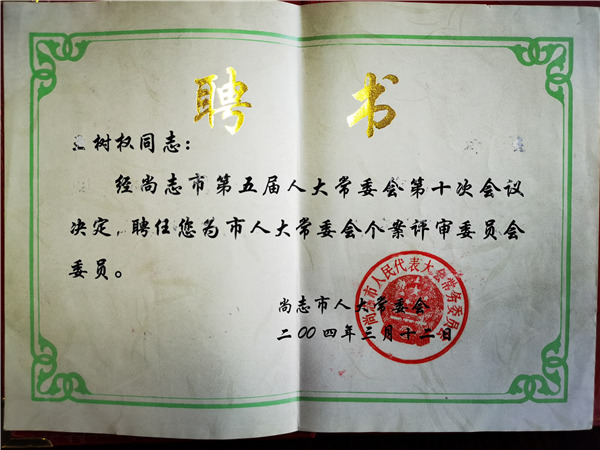 聘书
树权同志：
经尚志市第五届人大常委会第十次会议
决定，聘任您为市人大常委会个案评审委员会
委员。
尚志市人大常委会
二00四年三月十二日
尚志市人民代表大会常务委员会